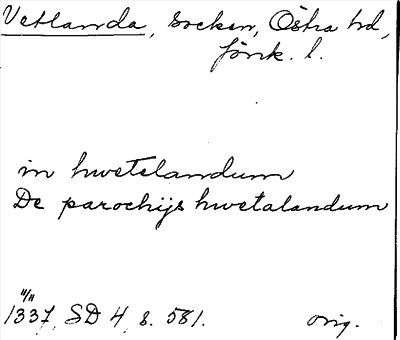 Vetlanda, socken, Östra hd,
Jönk. l.
in hwetelandum
De parochijs hwetalandum
11/11
1337, SD 4, s. 581. orig.